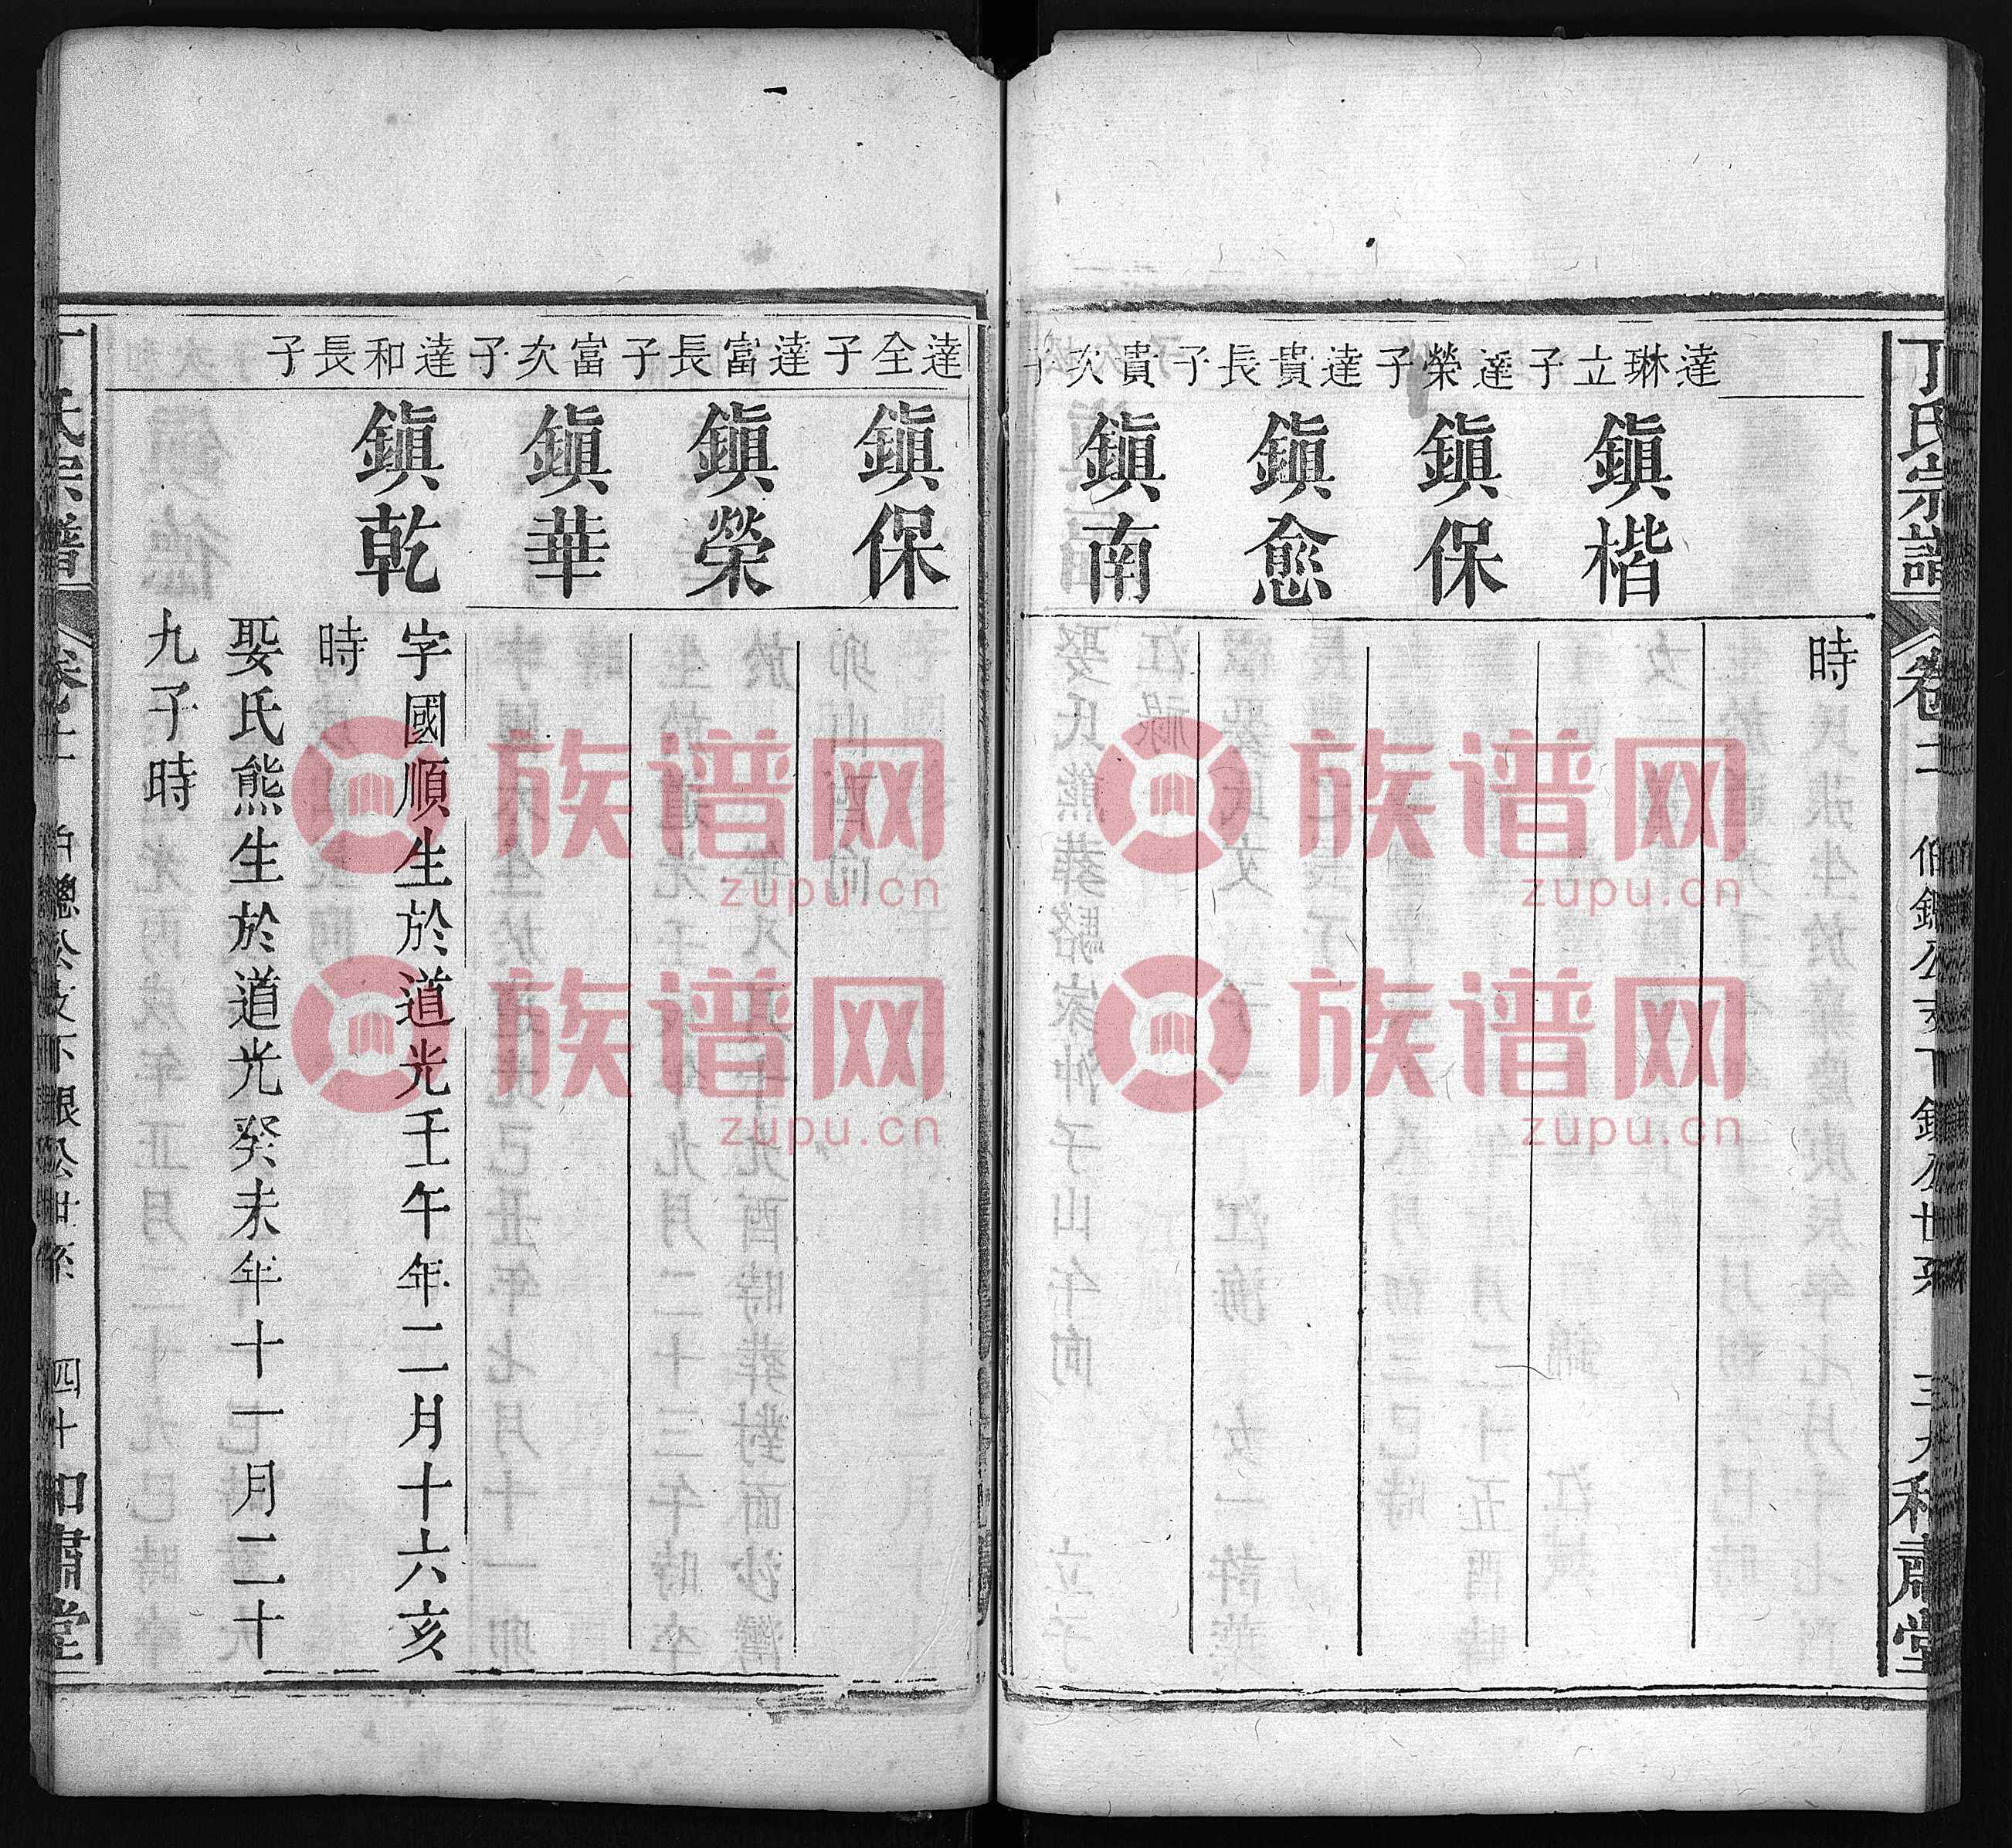 丁氏宗譜
卷二
三九
和肅堂
時
達琳立子
鎮楷
達榮子
鎮保
達貴長子
鎮愈
貴次子
鎮南
達全子
鎮保
達富長子
鎮榮
富次子
鎮華
達和長子
鎮乾
字國順生於道光壬午年二月十六亥
時
娶氏熊生於道光癸未年十一月二十
九子時
丁氏宗譜
四十
和肅堂
族谱网
zupu.cn
族谱网
zupu.cn
族谱网
zupu.cn
族谱网
zupu.cn